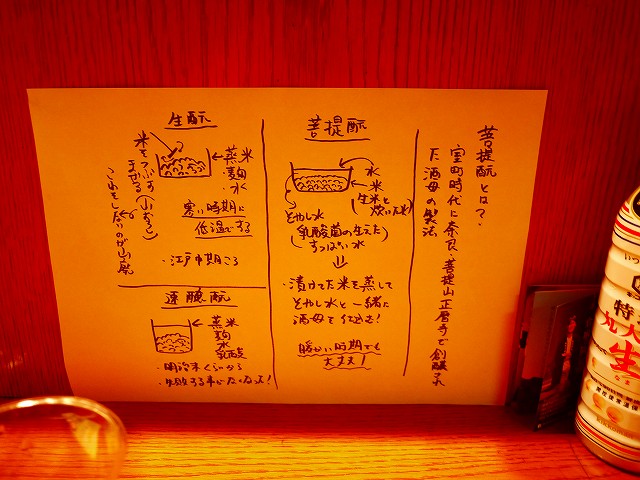 菩提酛とは?
室町時代に奈良・菩提山正暦寺で創醸され
た酒母の製法
菩提酛
水
米
(生米と
炊いた米)
そやし水
(乳酸菌の生えた
すっぱい水)
・漬けてた米を蒸して
そやし水と一緒に
酒母を仕込む!
暖かい時期でも
大丈夫!
生酛
蒸米
麹
水
米をつぶす
手がある(山おろし)
これをしないのが山廃
寒い時期に
低温でする
・江戸中期ころ
速醸酛
蒸米
麹
水
乳酸
・明治末くらいから
・失敗する事がなくなった!
特
生
なま